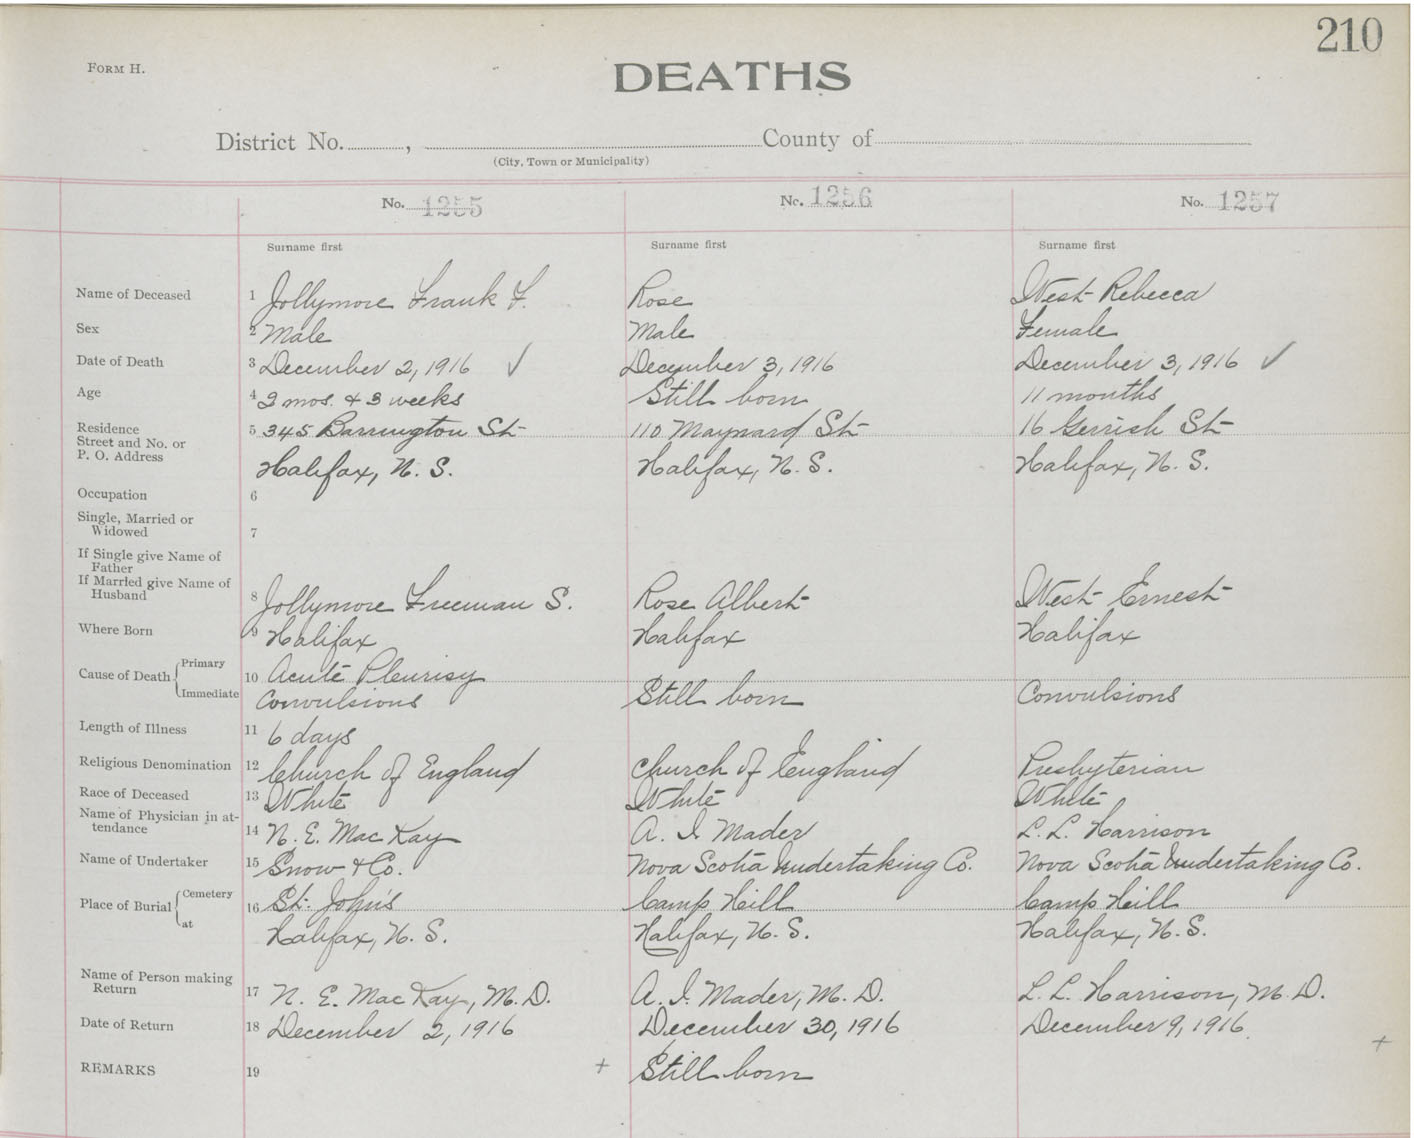 210
FORM H.
DEATHS
District No. , County of
(City, Town or Municipality)
No. 1255 No. 1256 No. 1257
Surname first Surname first Surname first
Name of Deceased 1 Jollymore Frank F. Rose West Rebecca
Sex 2 Male Male Female
Date of Death 3 December 2, 1916 ✓ December 3, 1916 December 3, 1916 ✓
Age 4 2 mos. + 3 weeks Still born 11 months
Residence 5 345 Barrington St 110 Maynard St 16 Gerrish St
Street and No. or
P. O. Address Halifax, N. S. Halifax, N. S. Halifax, N. S.
Occupation 6
Single, Married or
Widowed 7
If Single give Name of
Father
If Married give Name of
Husband 8 Jollymore Freeman S. Rose Albert West Ernest
Where Born 9 Halifax Halifax Halifax
Cause of Death Primary 10 Acute Pleurisy
Immediate Convulsions Still born Convulsions
Length of Illness 11 6 days
Religious Denomination 12 Church of England Church of England Presbyterian
Race of Deceased 13 White White White
Name of Physician in at-
tendance 14 N. E. MacKay A. I. Mader L. L. Harrison
Name of Undertaker 15 Snow + Co. Nova Scotia Undertaking Co. Nova Scotia Undertaking Co.
Place of Burial Cemetery 16 St. John's Camp Hill Camp Hill
at Halifax, N. S. Halifax, N. S. Halifax, N. S.
Name of Person making
Return 17 N. E. MacKay, M. D. A. I. Mader, M. D. L. L. Harrison, M. D.
Date of Return 18 December 2, 1916 December 30, 1916 December 9, 1916.
REMARKS 19 + Still born +